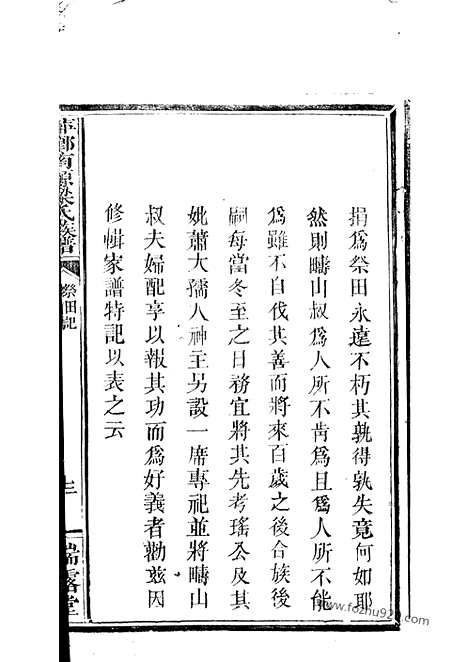 捐為祭田永遠不朽其孰得孰失竟何如耶
然則疇山叔為人所不肯為且為人所不能
為雖不自伐其善而將來百歲之後合族後
嗣每當冬至之日務宜將其先考瑤公及其
妣蕭大孺人神主另設一席專祀並將疇山
叔夫婦配享以報其功而為好義者勸茲因
修輯家譜特記以表之云
氏族譜
祭田記
三
堂
www.fozhu920.com